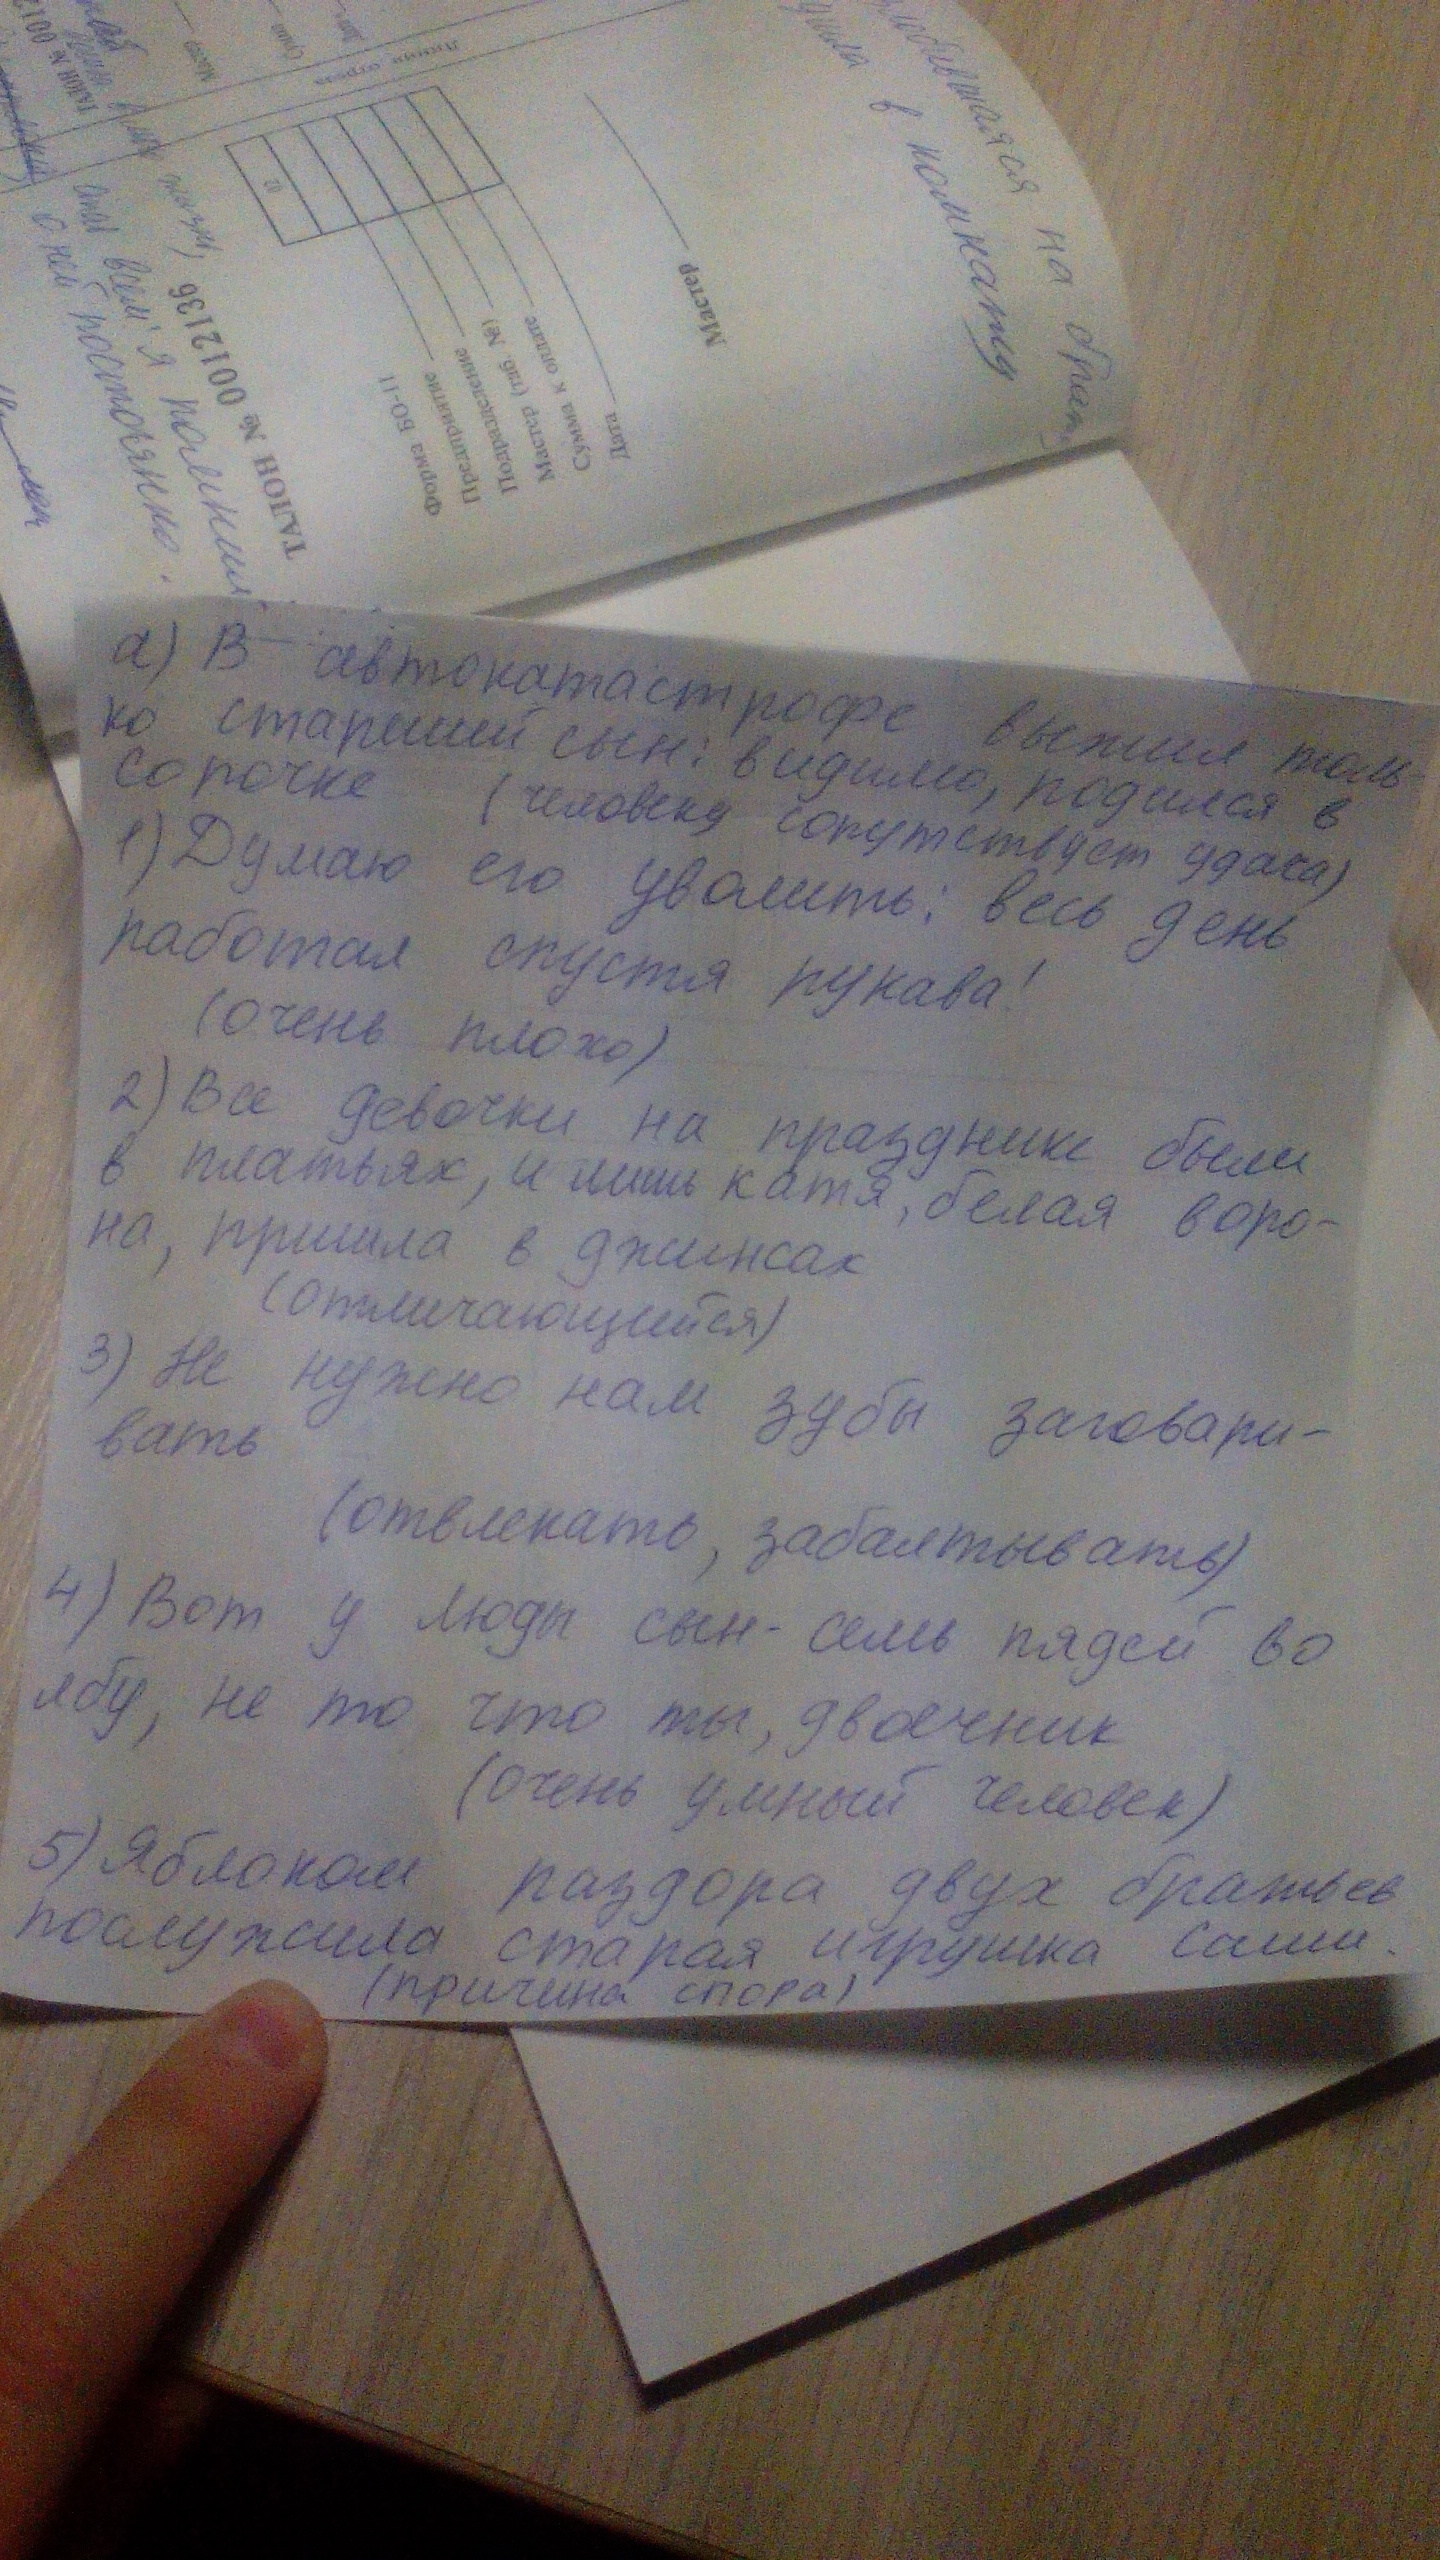 обившаяся на брат
в комнату
Мастер
Дата
Сумма к оплате
Мастер (таб. №)
Подразделение
Предприятие
Форма БО-11
02
Линия отреза
ТАЛОН № 0012136
всем'я помнил
о нем постоянно.
ТАЛОН № 0012
а) В автокатастрофе выжил толь-
ко старший сын: видимо, родился в
сорочке (человеку сопутствует удача)
1) Думаю его уволить: весь день
работал спустя рукава!
(очень плохо)
2) Все девочки на празднике были
в платьях, и лишь катя, белая воро-
на, пришла в джинсах
(отличающийся)
3) Не нужно нам зубы заговари-
вать
(отвлекать, забалтывать)
4) Вот у Люды сын - семь пядей во
лбу, не то что ты, двоечник
(очень умный человек)
5) Яблоком раздора двух братьев
послужила старая игрушка Саши.
(причина спора)